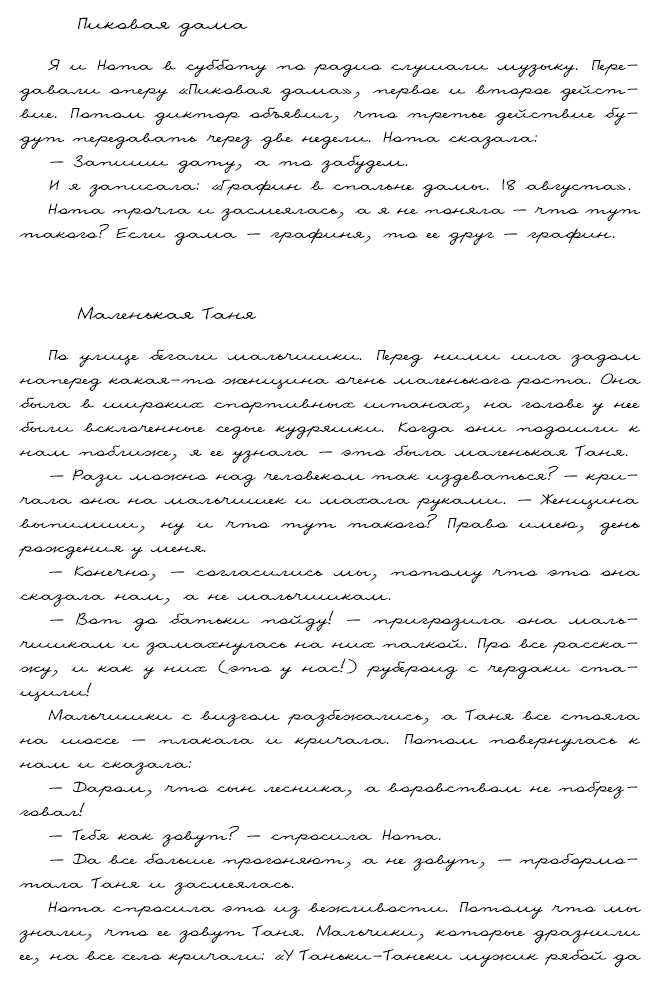 Пиковая дама
Я и Нота в субботу по радио слушали музыку. Пере-
давали оперу «Пиковая дама», первое и второе дейст-
вие. Потом диктор объявил, что третье действие бу-
дут передавать через две недели. Нота сказала:
— Запиши дату, а то забудем.
И я записала: «Графин в спальне дамы. 18 августа».
Нота прочла и засмеялась, а я не поняла — что тут
такого? Если дама — графиня, то ее друг — графин.
Маленькая Таня
По улице бегали мальчишки. Перед ними шла задом
наперед какая-то женщина очень маленького роста. Она
была в широких спортивных штанах, на голове у нее
были всклоченные седые кудряшки. Когда они подошли к
нам поближе, я ее узнала — это была маленькая Таня.
— Рази можно над человеком так издеваться? — кри-
чала она на мальчишек и махала руками. — Женщина
выпимши, ну и что тут такого? Право имею, день
рождения у меня.
— Конечно, — согласились мы, потому что это она
сказала нам, а не мальчишкам.
— Вот до батьки пойду! — пригрозила она маль-
чишкам и замахнулась на них палкой. Про все расска-
жу, и как у них (это у нас!) рубероид с чердаки ста-
щили!
Мальчишки с визгом разбежались, а Таня все стояла
на шоссе — плакала и кричала. Потом повернулась к
нам и сказала:
— Даром, что сын лесника, а воровством не побрез-
говал!
— Тебя как зовут? — спросила Нота.
— Да все больше прогоняют, а не зовут, — пробормо-
тала Таня и засмеялась.
Нота спросила это из вежливости. Потому что мы
знали, что ее зовут Таня. Мальчики, которые дразнили
ее, на все село кричали: «У Таньки-Танеки мужик рябой да